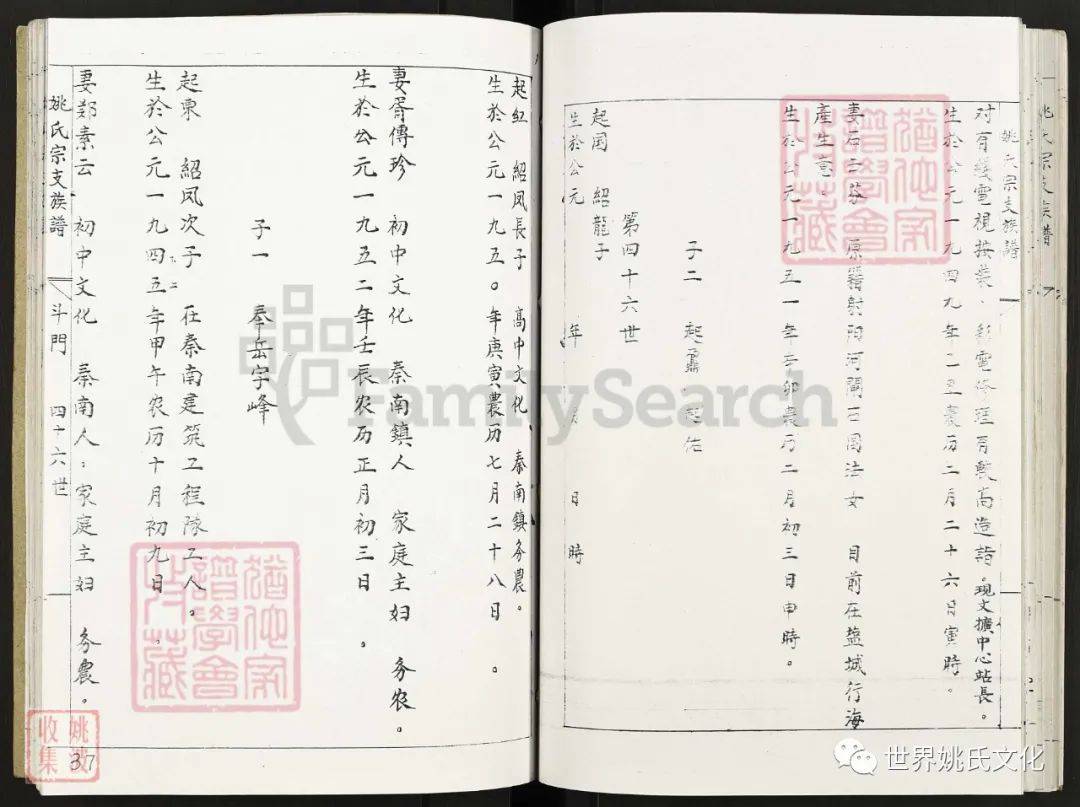 姚氏宗支族譜
对有綫電視按装、彩電修理有較高造詣。現文擴中心站長。
生於公元一九四九年二丑農历二月二十六日寅時。
妻石三芬 原籍射阳河闸石国法女 目前在盐城行海
產生意。
生於公元一九五一年辛卯農历二月初三日申時。
子二 起鼐 起佑
第四十六世
起国 紹龍子
生於公元 年 月 日 時
起紅 紹凤長子 高中文化 秦南鎮务農。
生於公元一九五〇年庚寅農历七月二十八日。
妻胥傅珍 初中文化 秦南鎮人 家庭主妇 务农。
生於公元一九五二年壬辰农历正月初三日。
子一 奉岳字峰
起東 紹凤次子 在秦南建筑工程隊工人。
生於公元一九四五年甲午农历十月初九日。
妻郑素云 初中文化 秦南人。家庭主妇 务農。
姚氏宗支族譜 斗門 四十六世
37
姚氏宗支族譜
猶他家譜學會珍藏
猶他家譜學會珍藏
收集
FamilySearch
世界姚氏文化